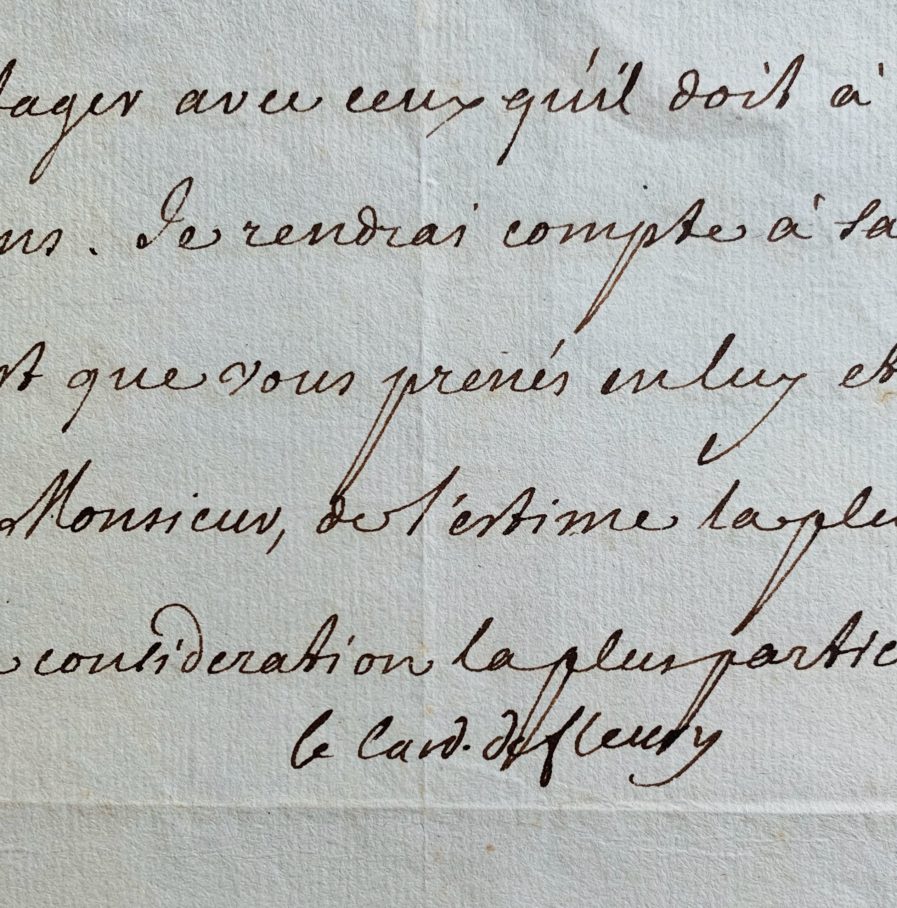 tager avec ceux qu'il doit à
ns. Je rendrai compte à Sa
st que vous prenés en luy et
Monsieur, de l'estime la plu
consideration la plus partic
le Card. de fleury